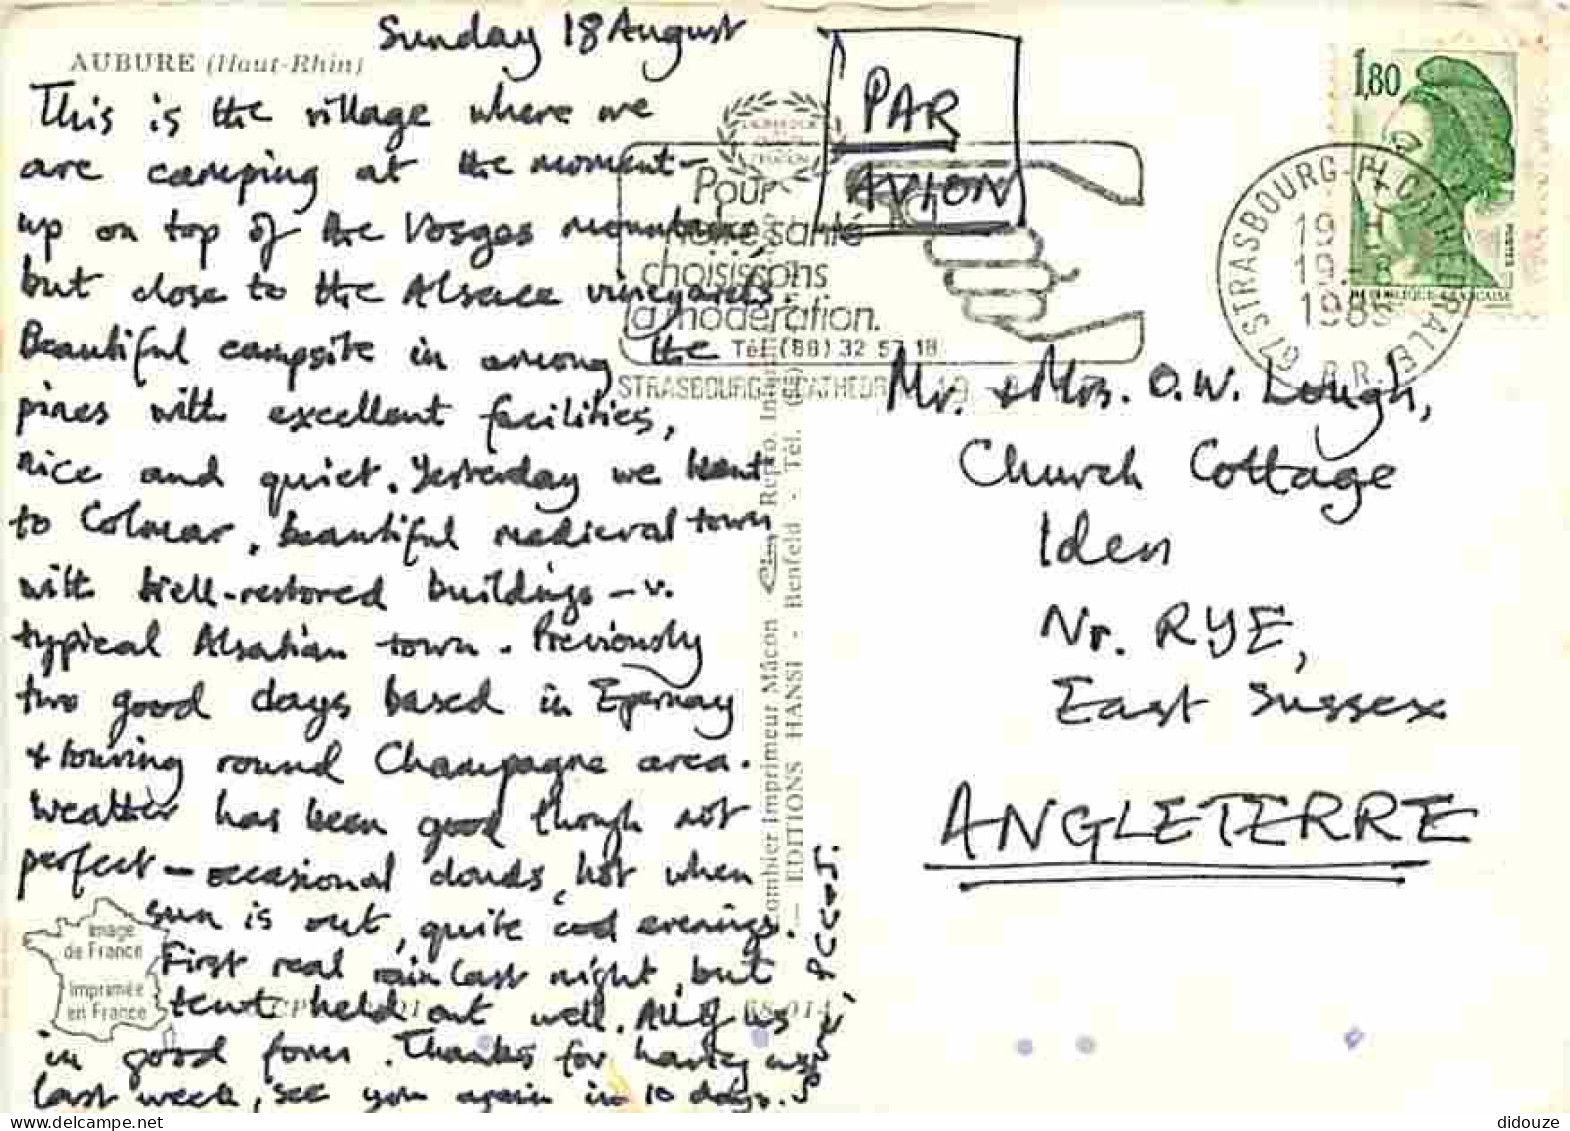 Sunday 18 August
AUBURE (Haut-Rhin)
This is the village where we
are camping at the moment -
up on top of the Vosges mountains,
but close to the Alsace vineyards.
Beautiful campsite in among the
pines with excellent facilities,
nice and quiet. Yesterday we went
to Colmar, beautiful medieval town
with well-restored buildings - v.
typical Alsatian town. Previously
two good days based in Epernay
+ touring round Champagne area.
Weather has been good though not
perfect - occasional clouds, hot when
sun is out, quite cool evenings.
First real rain last night, but
tent held out well. All of us
in good form. Thanks for having us
last week, see you again in 10 days.
Image
de France
Imprimée
en France
Combier Imprimeur Mâcon
EDITIONS HANSI - Benfeld - Tél.
PAR
AVION
Pour
notre santé
choisissons
la modération.
Tél (88) 32 57 18
STRASBOURG CATHEDR
1,80
POSTES
REPUBLIQUE FRANÇAISE
67 STRASBOURG-PL CATHEDRALE
19 H
19 - 8
1985
B.R.
Mr. + Mrs. O.W. Lough,
Church Cottage
Iden
Nr. RYE,
East Sussex
ANGLETERRE
didouze